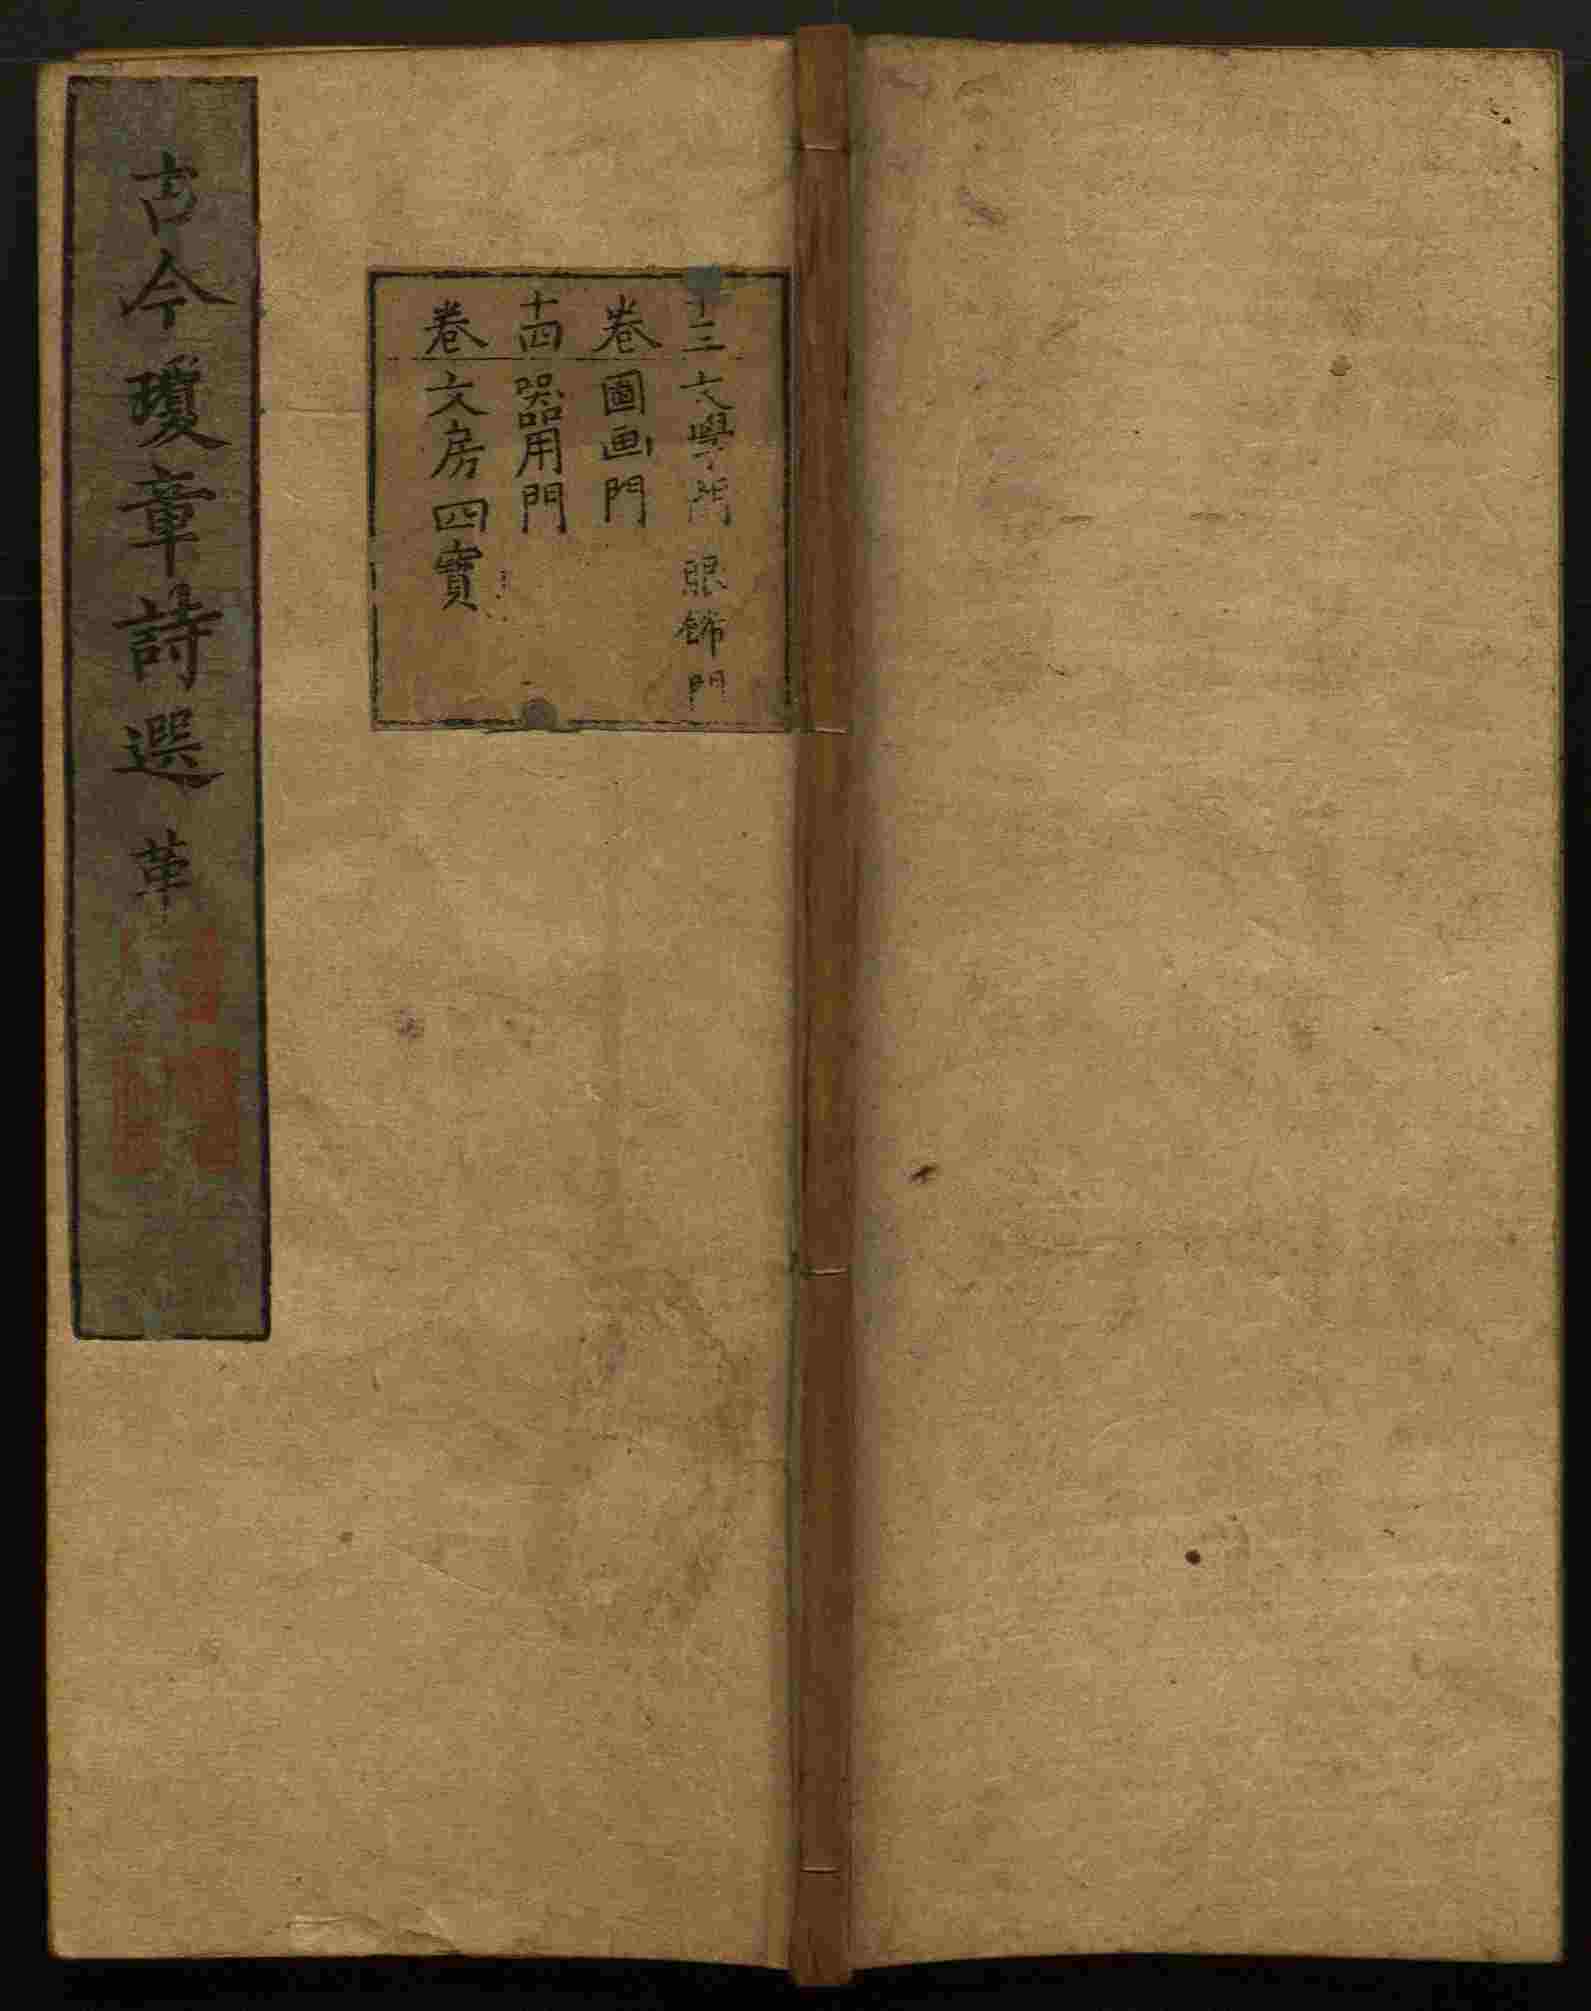 古今瓊章詩選 革
十三 文學門 服飾門
卷 圖画門
十四 器用門
卷 文房四寶